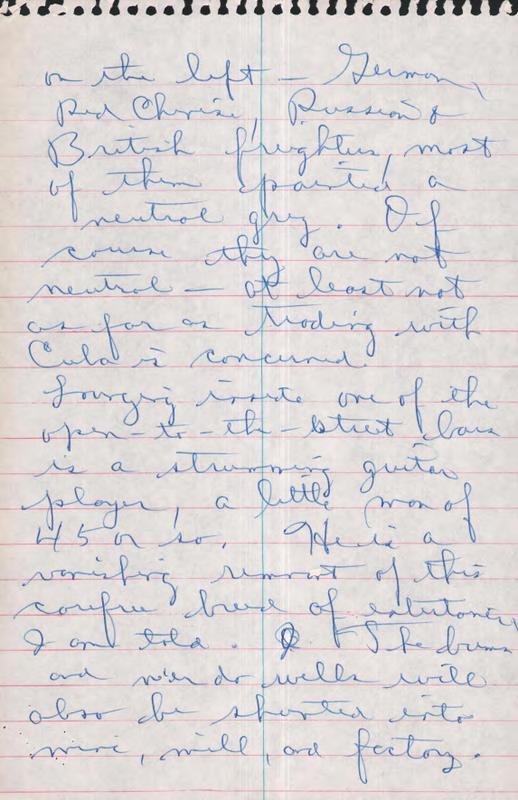 on the left — German,
Red Chinese, Russian &
British freighters, most
of them painted a
neutral grey. Of
course they are not
neutral — at least not
as far as trading with
Cuba is concerned.
Lounging inside one of the
open-to-the-street bars
is a strumming guitar
player, a little man of
45 or so. He is a
vanishing remnant of this
carefree breed of entertainers,
I am told. The bums
and ne'er do wells will
also be shunted into
mine, mill, and factory.